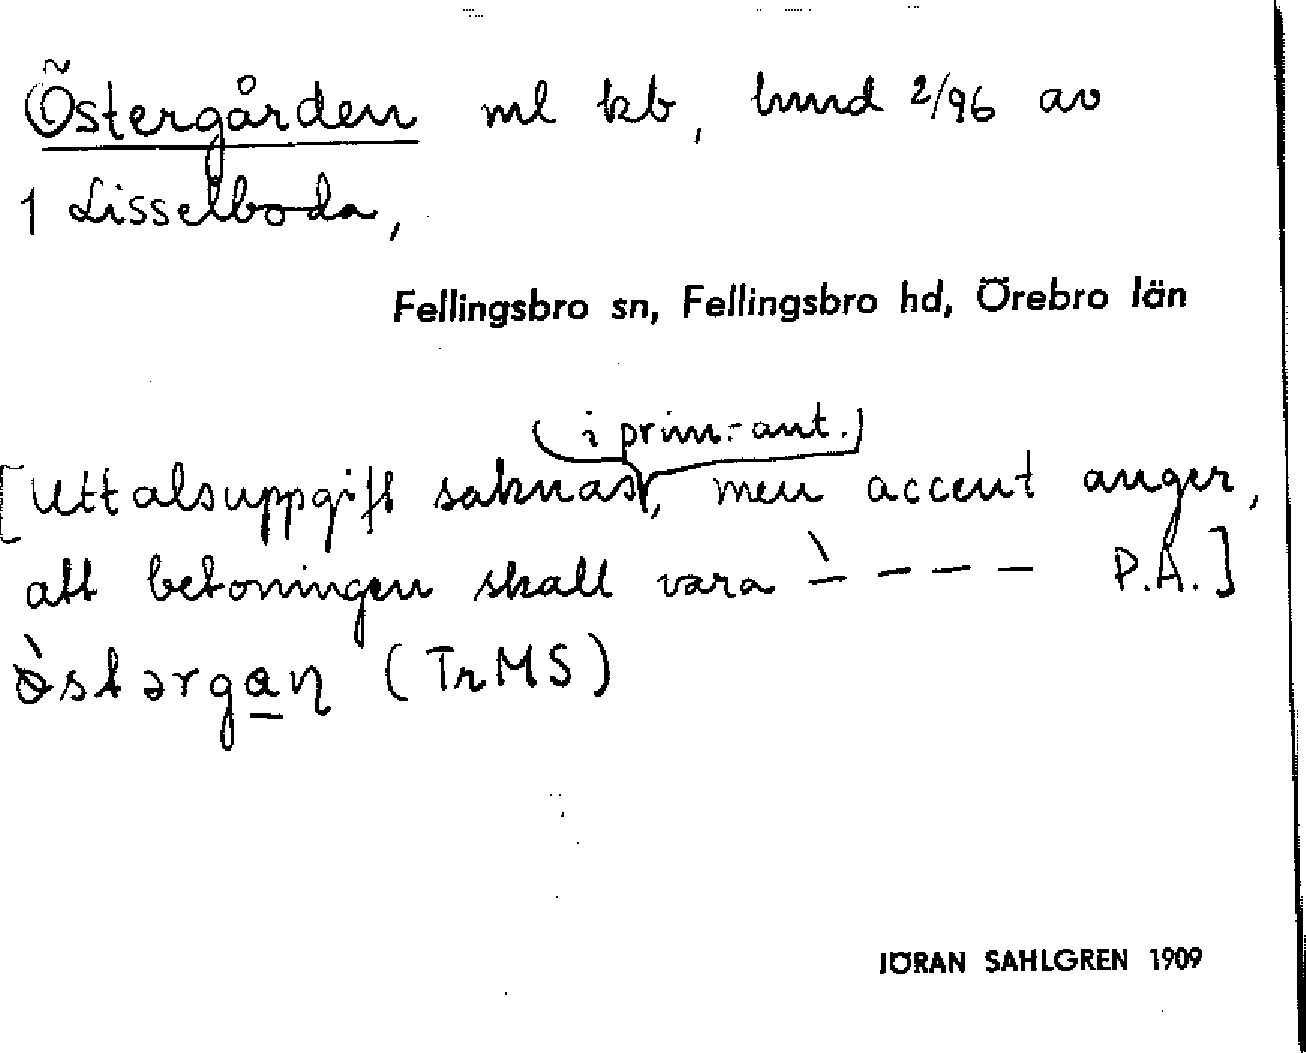 Östergården ml kb, hmd 2/96 av
1 Lisselboda,
Fellingsbro sn, Fellingsbro hd, Örebro län
(i prim.-ant.)
[Uttalsuppgift saknas, men accent anger,
att betoningen skall vara ̀– – – – P.Å.]
(TrMS)
JÖRAN SAHLGREN 1909